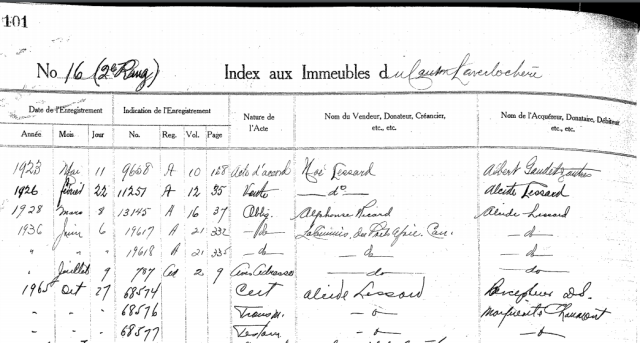 101
No 16 (2e Rang) Index aux Immeubles du Canton Laverlochère
Date de l'Enregistrement Indication de l'Enregistrement Nature de l'Acte Nom du Vendeur, Donateur, Créancier, etc., etc. Nom de l'Acquéreur, Donataire, Débiteur etc., etc.
Année Mois Jour No. Reg. Vol. Page
1923 Mai 11 9608 A 10 128 Acte d'accord Noé Lessard Albert Gaudet & autres
1926 février 22 11251 A 12 35 Vente - do - Alcide Lessard
1928 mars 8 13145 A 16 37 Oblig. Alphonse Ricard Alcide Lessard
1936 Juin 6 19617 A 21 332 - do - La Commis. du Prêt Agric. Can. - do -
" " " 19618 A 21 335 - do - - do - - do -
" Juillet 9 787 Ad 2 9 - do - - do -
1965 Oct 27 68574 Cert Alcide Lessard Percepteur
- - - 68576 Transm. - o - Marguerite
- - - 68577 Testam - o - - o -